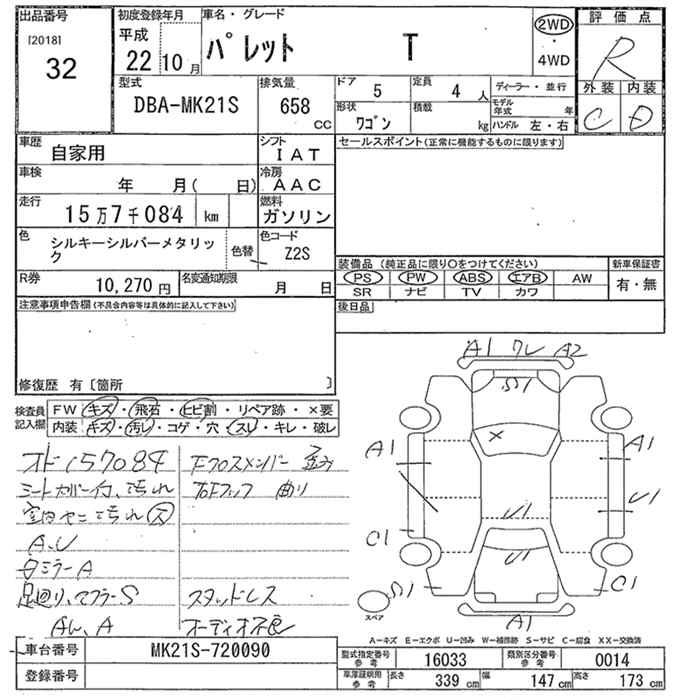 出品番号
[2018]
32
初度登録年月
平成
22 10月
車名・グレード
パレット T
2WD
・
4WD
評価点
R
外装 内装
C D
型式
DBA-MK21S
排気量
658
cc
ドア 5
定員 4 人
ディーラー・並行
形状 ワゴン
積載 kg
モデル年式 年
ハンドル 左・右
車歴
自家用
シフト
IAT
セールスポイント(正常に機能するものに限ります)
車検
年 月( 日)
冷房
AAC
走行
15万7千084 km
燃料
ガソリン
色
シルキーシルバーメタリック
色替
色コード
Z2S
装備品 (純正品に限り○をつけてください)
新車保証書
PS PW ABS エアB AW
有・無
SR ナビ TV カワ
R券
10,270円
名変通知期限
月 日
後日品
注意事項申告欄(不具合内容等は具体的に記入して下さい)
修復歴 有〔箇所 〕
検査員記入欄
FW キズ・飛石・ヒビ割・リペア跡・×要
内装 キズ・汚レ・コゲ・穴・スレ・キレ・破レ
オド157084
シートカバー付、汚れ
室内ヤニ汚れ 大
A、U
ミラーA
足回り、マフラーS
A
下クロスメンバー 歪み
右Fフック 曲り
スタッドレス
オーディオ不良
A1 ワレ A2
S1
×
A1
A1
U1
U1
C1
U1
S1
C1
スペア
A1
A-キズ E-エクボ U-凹み W-補修跡 S-サビ C-腐食 XX-交換済
車台番号
MK21S-720090
登録番号
型式指定番号
参考
16033
類別区分番号
参考
0014
車庫証明用
参考
長さ
339 cm
幅
147 cm
高さ
173 cm